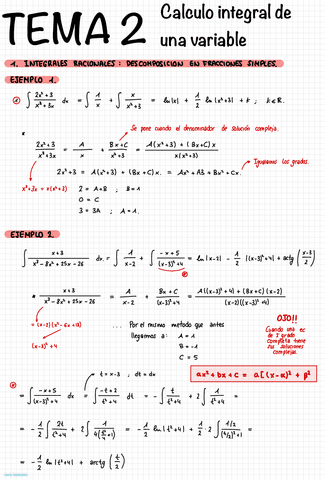 TEMA 2 Calculo integral de
una variable
1. INTEGRALES RACIONALES: DESCOMPOSICIÓN EN FRACCIONES SIMPLES.
EJEMPLO 1.
① ∫ (2x²+3)/(x³+3x) dx = ∫ 1/x + ∫ x/(x²+3) = ln|x| + 1/2 ln|x²+3| + k ; k∈R.
Se pone cuando el denominador da solución compleja.
* (2x²+3)/(x³+3x) = A/x + (Bx+C)/(x²+3) = (A(x²+3) + (Bx+C)x)/(x(x²+3))
Igualamos los grados.
2x²+3 = A(x²+3) + (Bx+C)x = Ax²+A3 + Bx²+Cx.
x³+3x = x(x²+3) 2 = A+B ; B=1
0 = C
3 = 3A ; A=1.
EJEMPLO 2.
∫ (x+3)/(x³-8x²+25x-26) dx = ∫ 1/(x-2) + ∫ (-x+5)/((x-3)²+4) = ln|x-2| - 1/2 |(x-3)²+4| + arctg((x-3)/2)
* (x+3)/(x³-8x²+25x-26) = A/(x-2) + (Bx+C)/((x-3)²+4) = (A((x-3)²+4) + (Bx+C)(x-2))/((x-2)((x-3)²+4))
= (x-2)(x²-6x+13) ... Por el mismo metodo que antes
llegamos a: A=1
(x-3)²+4 B=-1
C=5
OJO!!
Cuando una ec
de 2 grado
completa tiene
sus soluciones
complejas.
ax²+bx+c = a[(x-α)²+β²
t=x-3 ; dt=dx
∫ (-x+5)/((x-3)²+4) dx = ∫ (-t+2)/(t²+4) dt = -∫ t/(t²+4) + 2∫ 1/(t²+4) =
= -1/2 ∫ 2t/(t²+4) + 2∫ 1/(4(t²/4+1)) = -1/2 ln|t²+4| + 1/2·2∫ (1/2)/((t/2)²+1) =
= -1/2 ln|t²+4| + arctg(t/2)